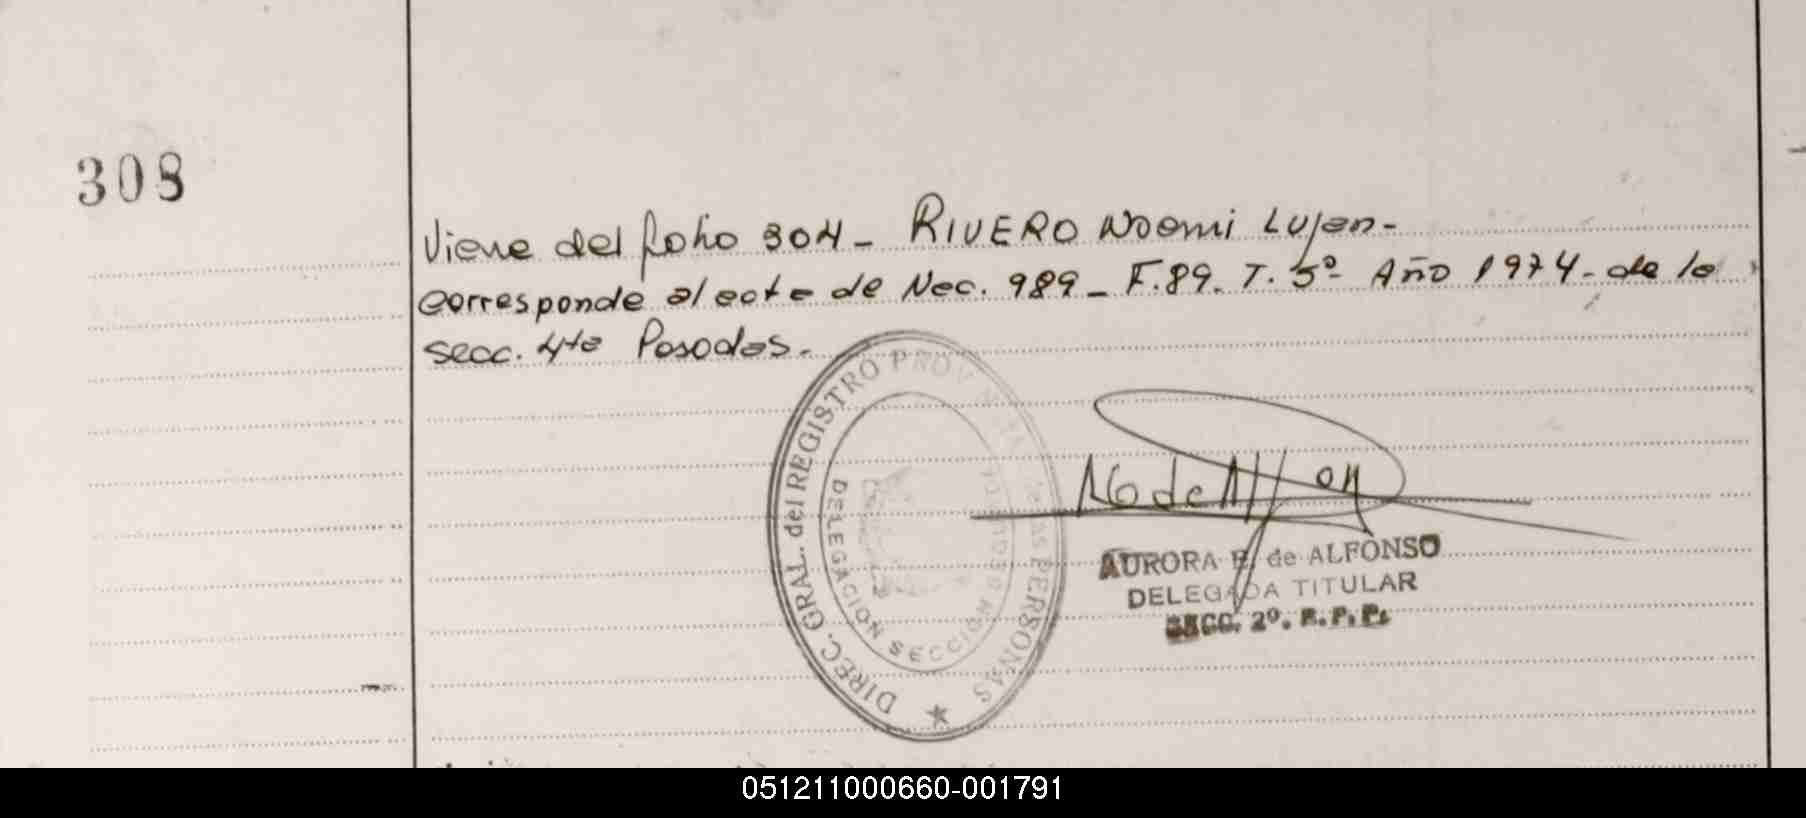 308
Viene del folio 304 - RIVERO Noemi Lujan -
corresponde al acta de Nac. 989 - F. 89. T. 5º Año 1974 - de la
secc. 4ta Posadas.
DIREC. GRAL. del REGISTRO PROVINCIAL de las PERSONAS
DELEGACION SECCION
AURORA E. de ALFONSO
DELEGADA TITULAR
SECC. 2º. R. P. P.
051211000660-001791